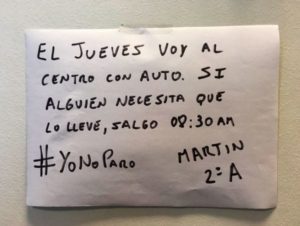 EL JUEVES VOY AL
CENTRO CON AUTO. SI
ALGUIEN NECESITA QUE
LO LLEVE, SALGO 08:30 AM
#YONOPARO
MARTIN
2º A